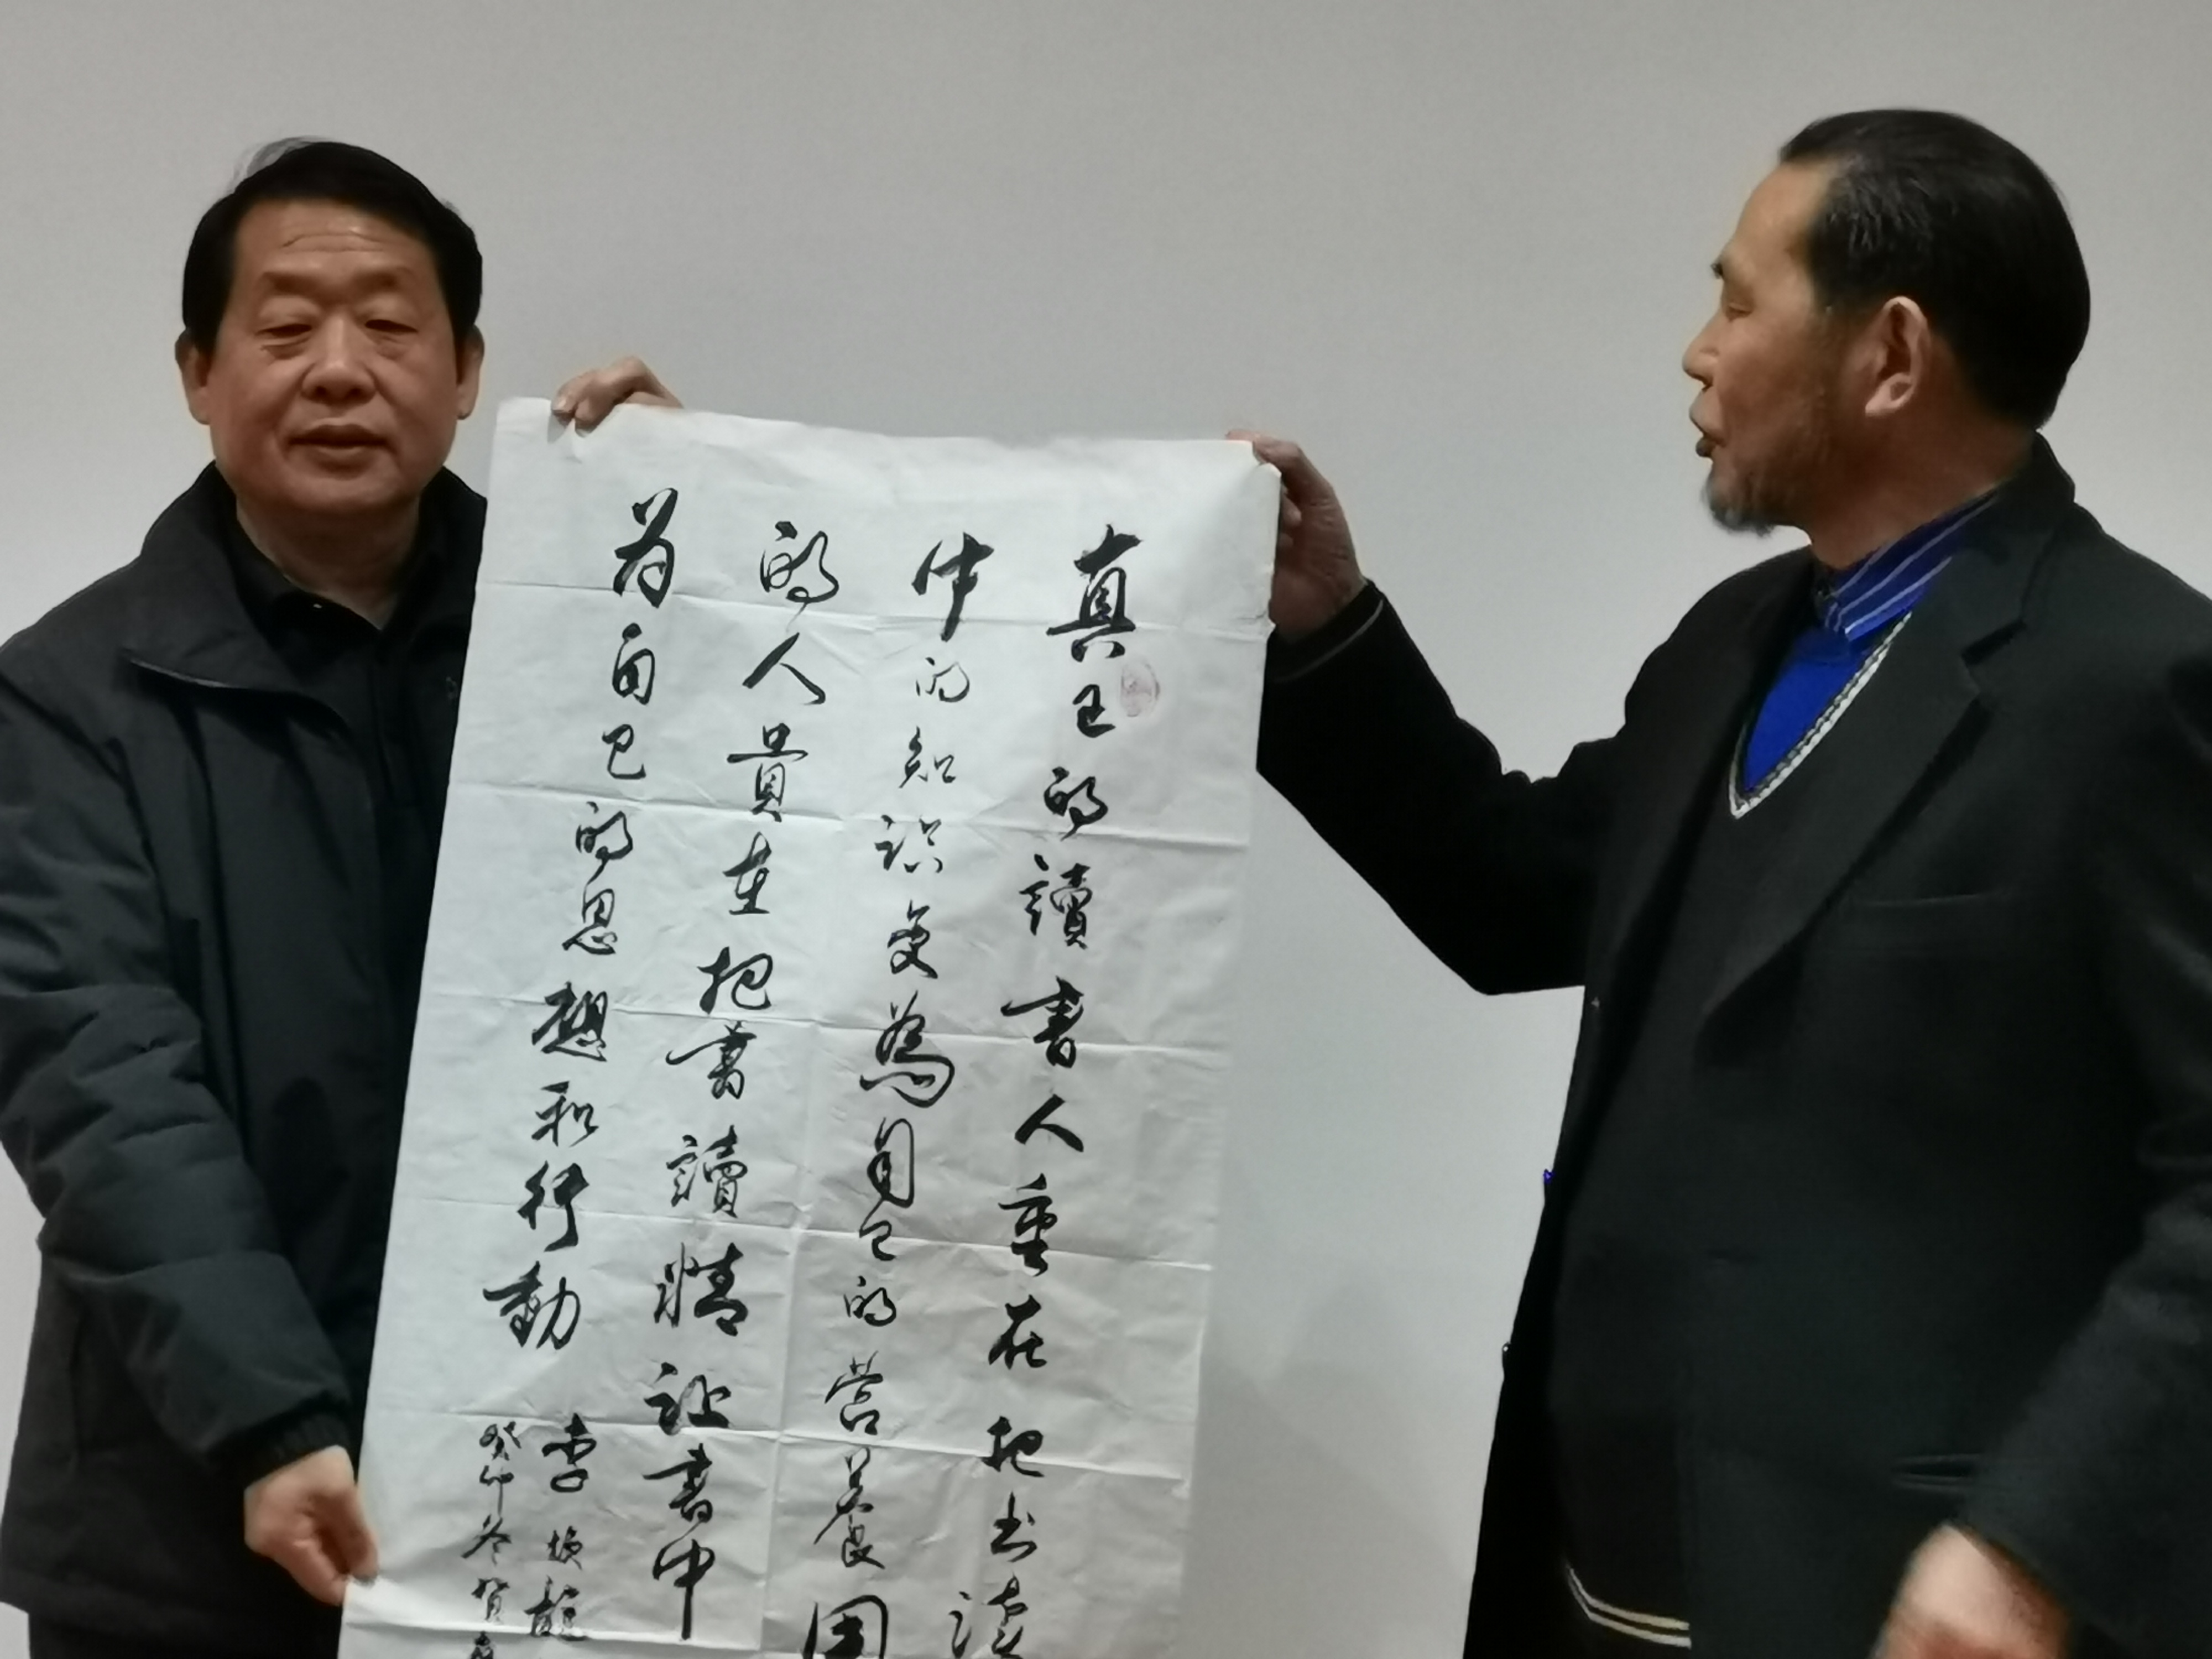 真正的讀書人重在把书读
中的知识变為自己的营養固
的人貴在把書讀精让書中
为自己的思想和行動
李焕龍
癸卯冬賀春